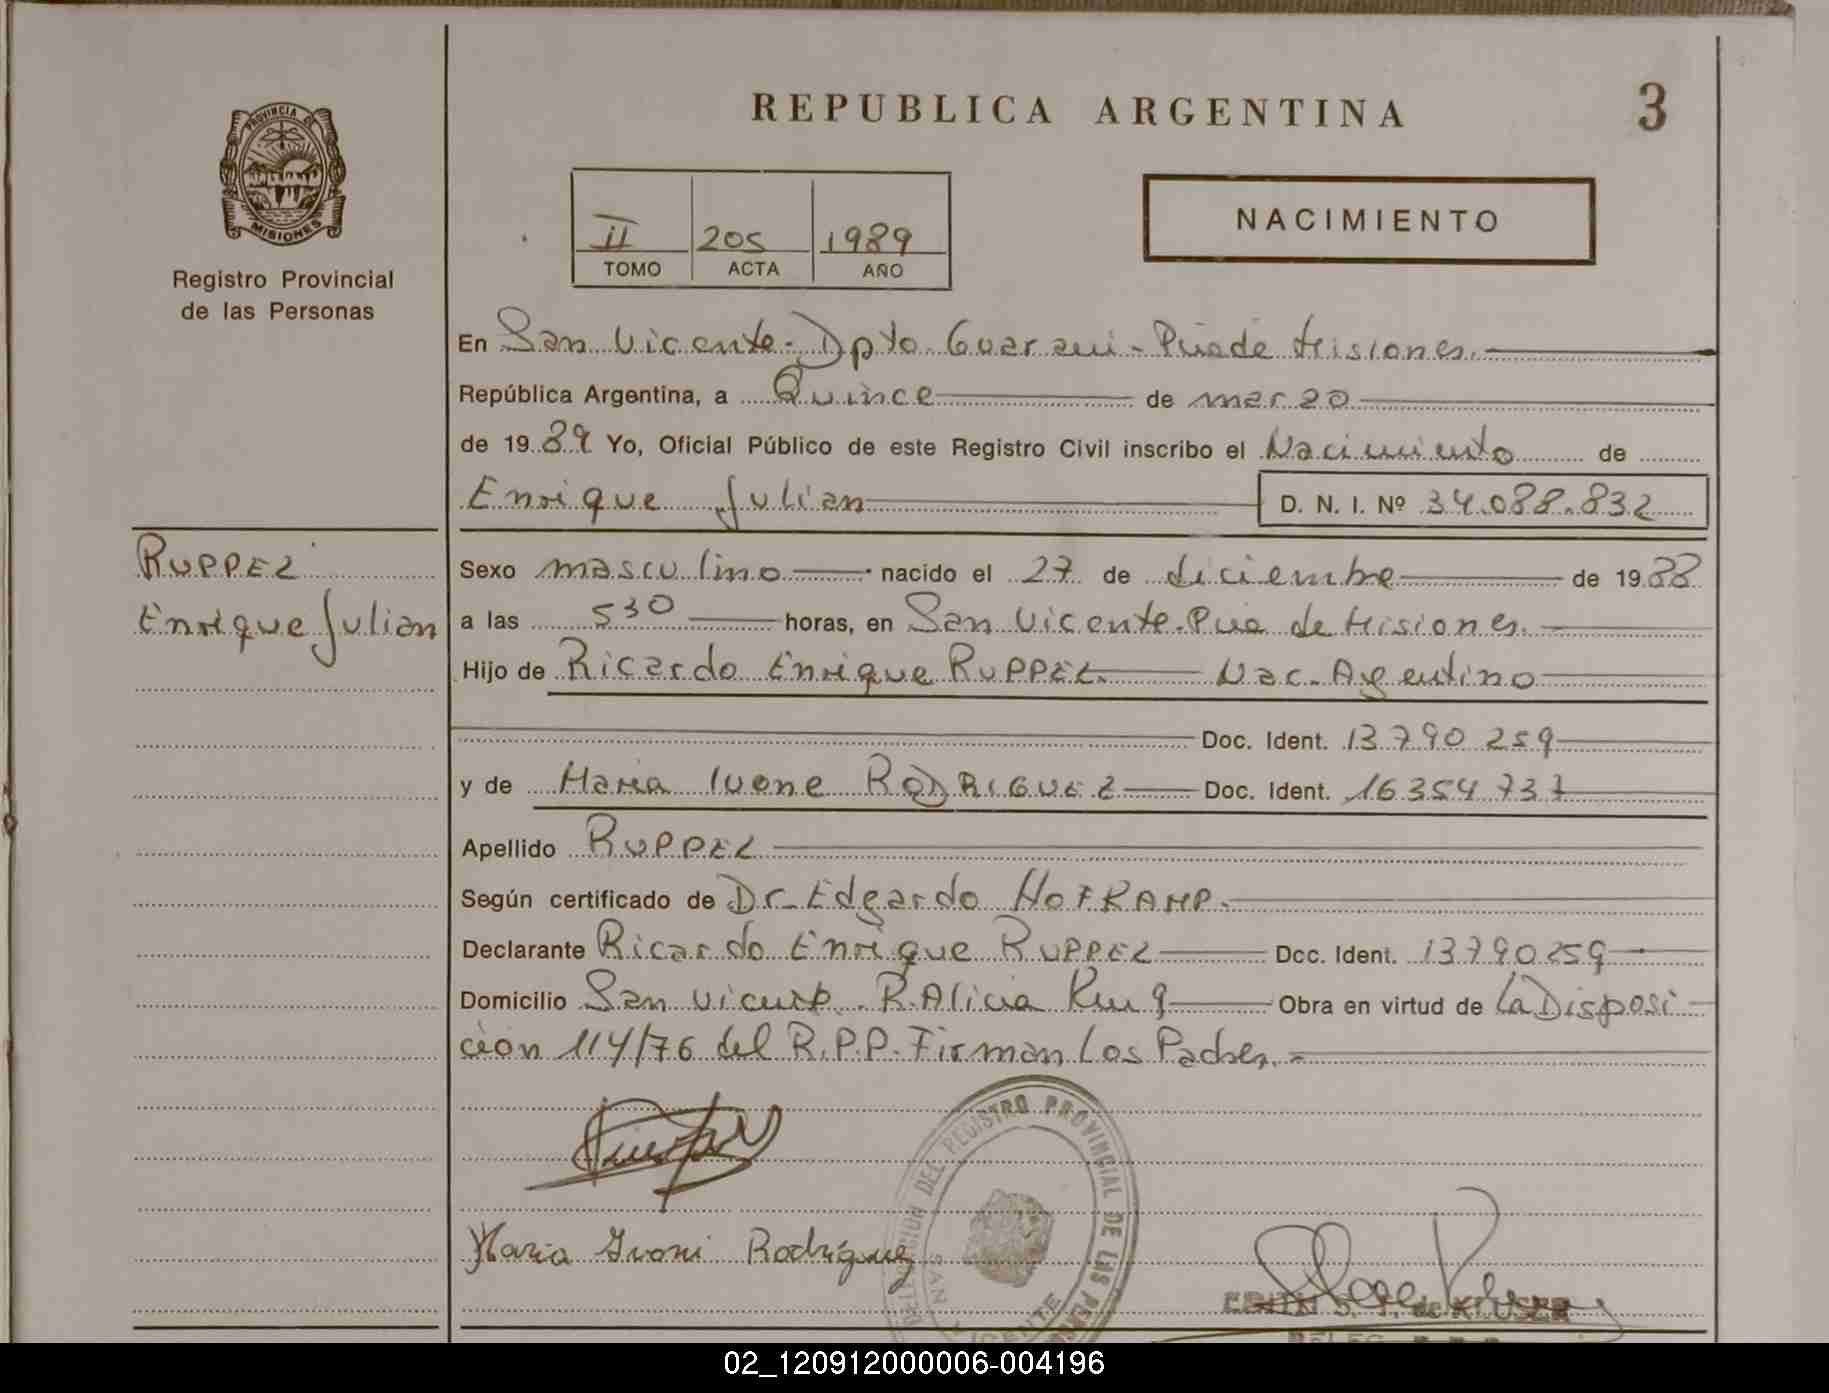 REPUBLICA ARGENTINA
3
PROVINCIA DE
MISIONES
Registro Provincial
de las Personas
II 205 1989
TOMO ACTA AÑO
NACIMIENTO
En San Vicente - Dpto Guarani - Pcia de Misiones.
República Argentina, a Quince de marzo
de 1989 Yo, Oficial Público de este Registro Civil inscribo el Nacimiento de
Enrique Julian D. N. I. Nº 34.088.832
RUPPEL
Enrique Julian
Sexo masculino nacido el 27 de diciembre de 1988
a las 530 horas, en San Vicente - Pcia de Misiones.
Hijo de Ricardo Enrique RUPPEL. Nac. Argentino
Doc. Ident. 13790259
y de Maria Ivone RODRIGUEZ Doc. Ident. 16354737
Apellido RUPPEL
Según certificado de Dr. Edgardo HOFKAMP.
Declarante Ricardo Enrique RUPPEL Doc. Ident. 13790259
Domicilio San Vicente. R. Alicia Obra en virtud de La Disposi
ción 114/76 del R.P.P. Firman Los Padres. =
Maria Ivoni Rodríguez
DELEGACION DEL REGISTRO PROVINCIAL DE LAS PERSONAS
SAN VICENTE
EDITH de KLUSER
02_120912000006-004196